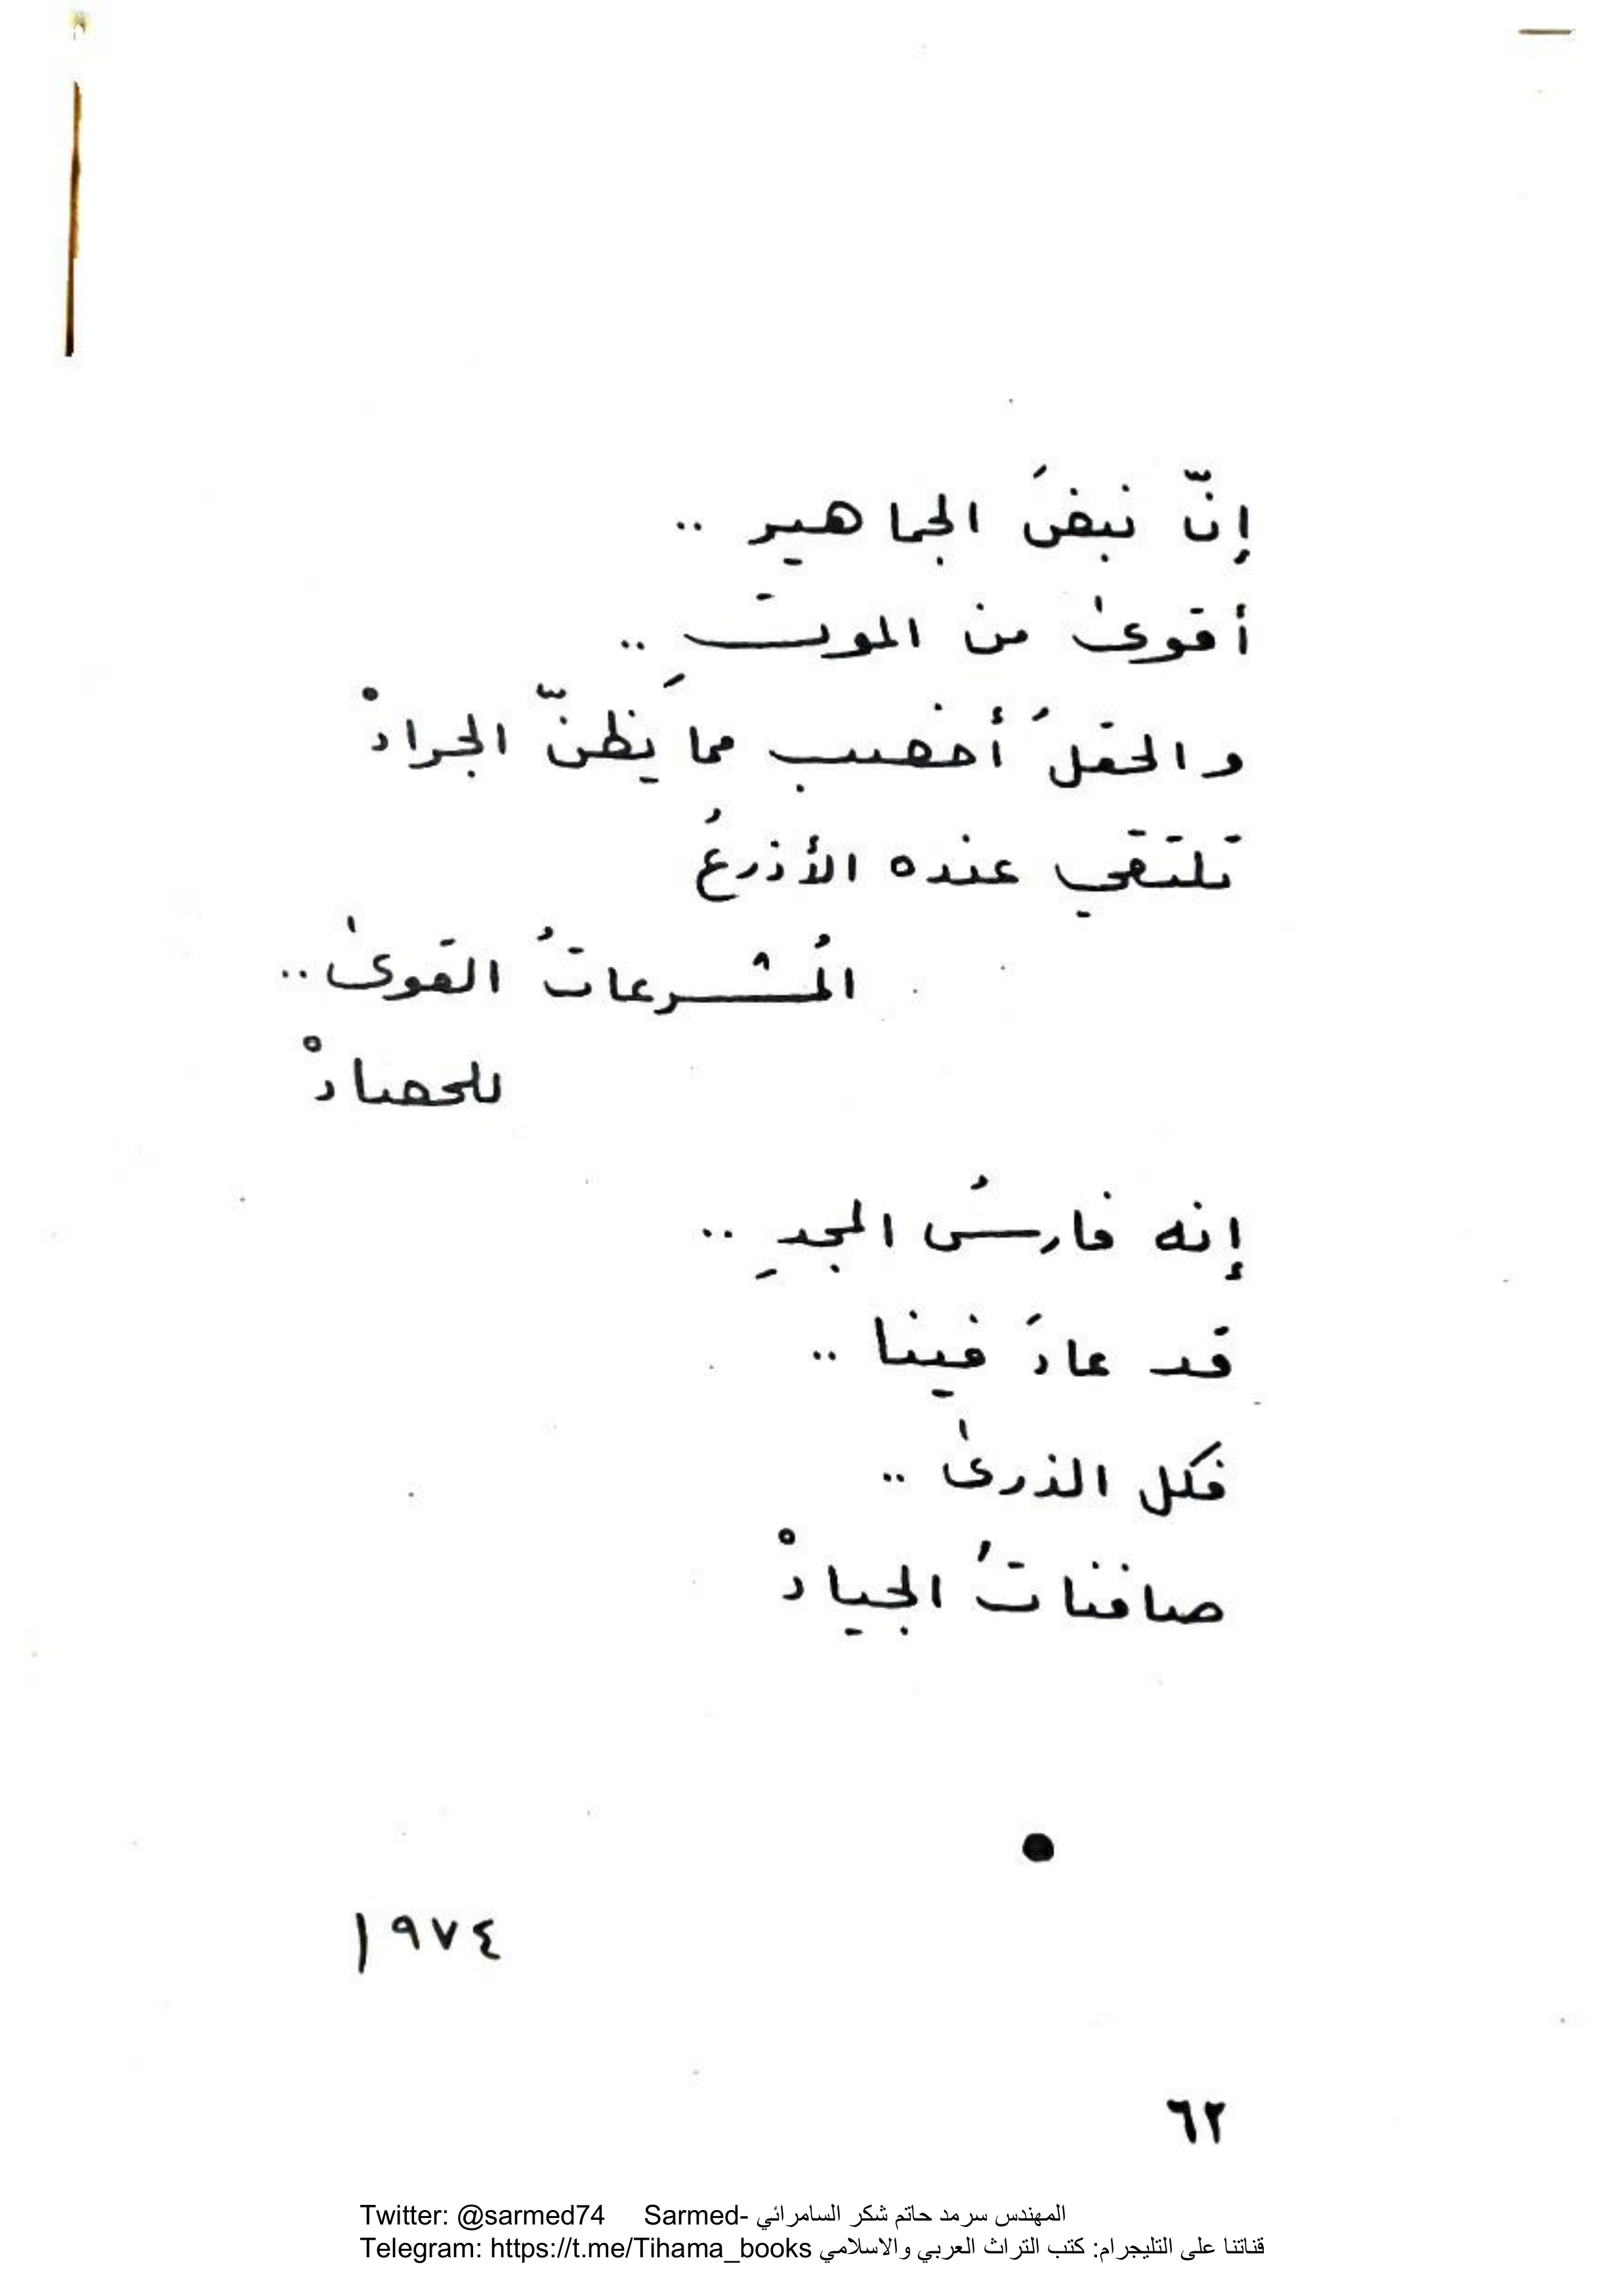 إنّ نبضَ الجماهير ..
أقوىٰ من الموتِ ..
والحقلُ أخصب مما يظنّ الجرادْ
تلتقي عنده الأذرعُ
المُشرعاتُ القوىٰ ..
للحصادْ
إنه فارسُ المجدِ ..
قد عادَ فينا ..
فكل الذرىٰ ..
صافناتُ الجيادْ
١٩٧٤
٦٢
Twitter: @sarmed74 Sarmed- المهندس سرمد حاتم شكر السامرائي
Telegram: https://t.me/Tihama_books قناتنا على التليجرام: كتب التراث العربي والاسلامي